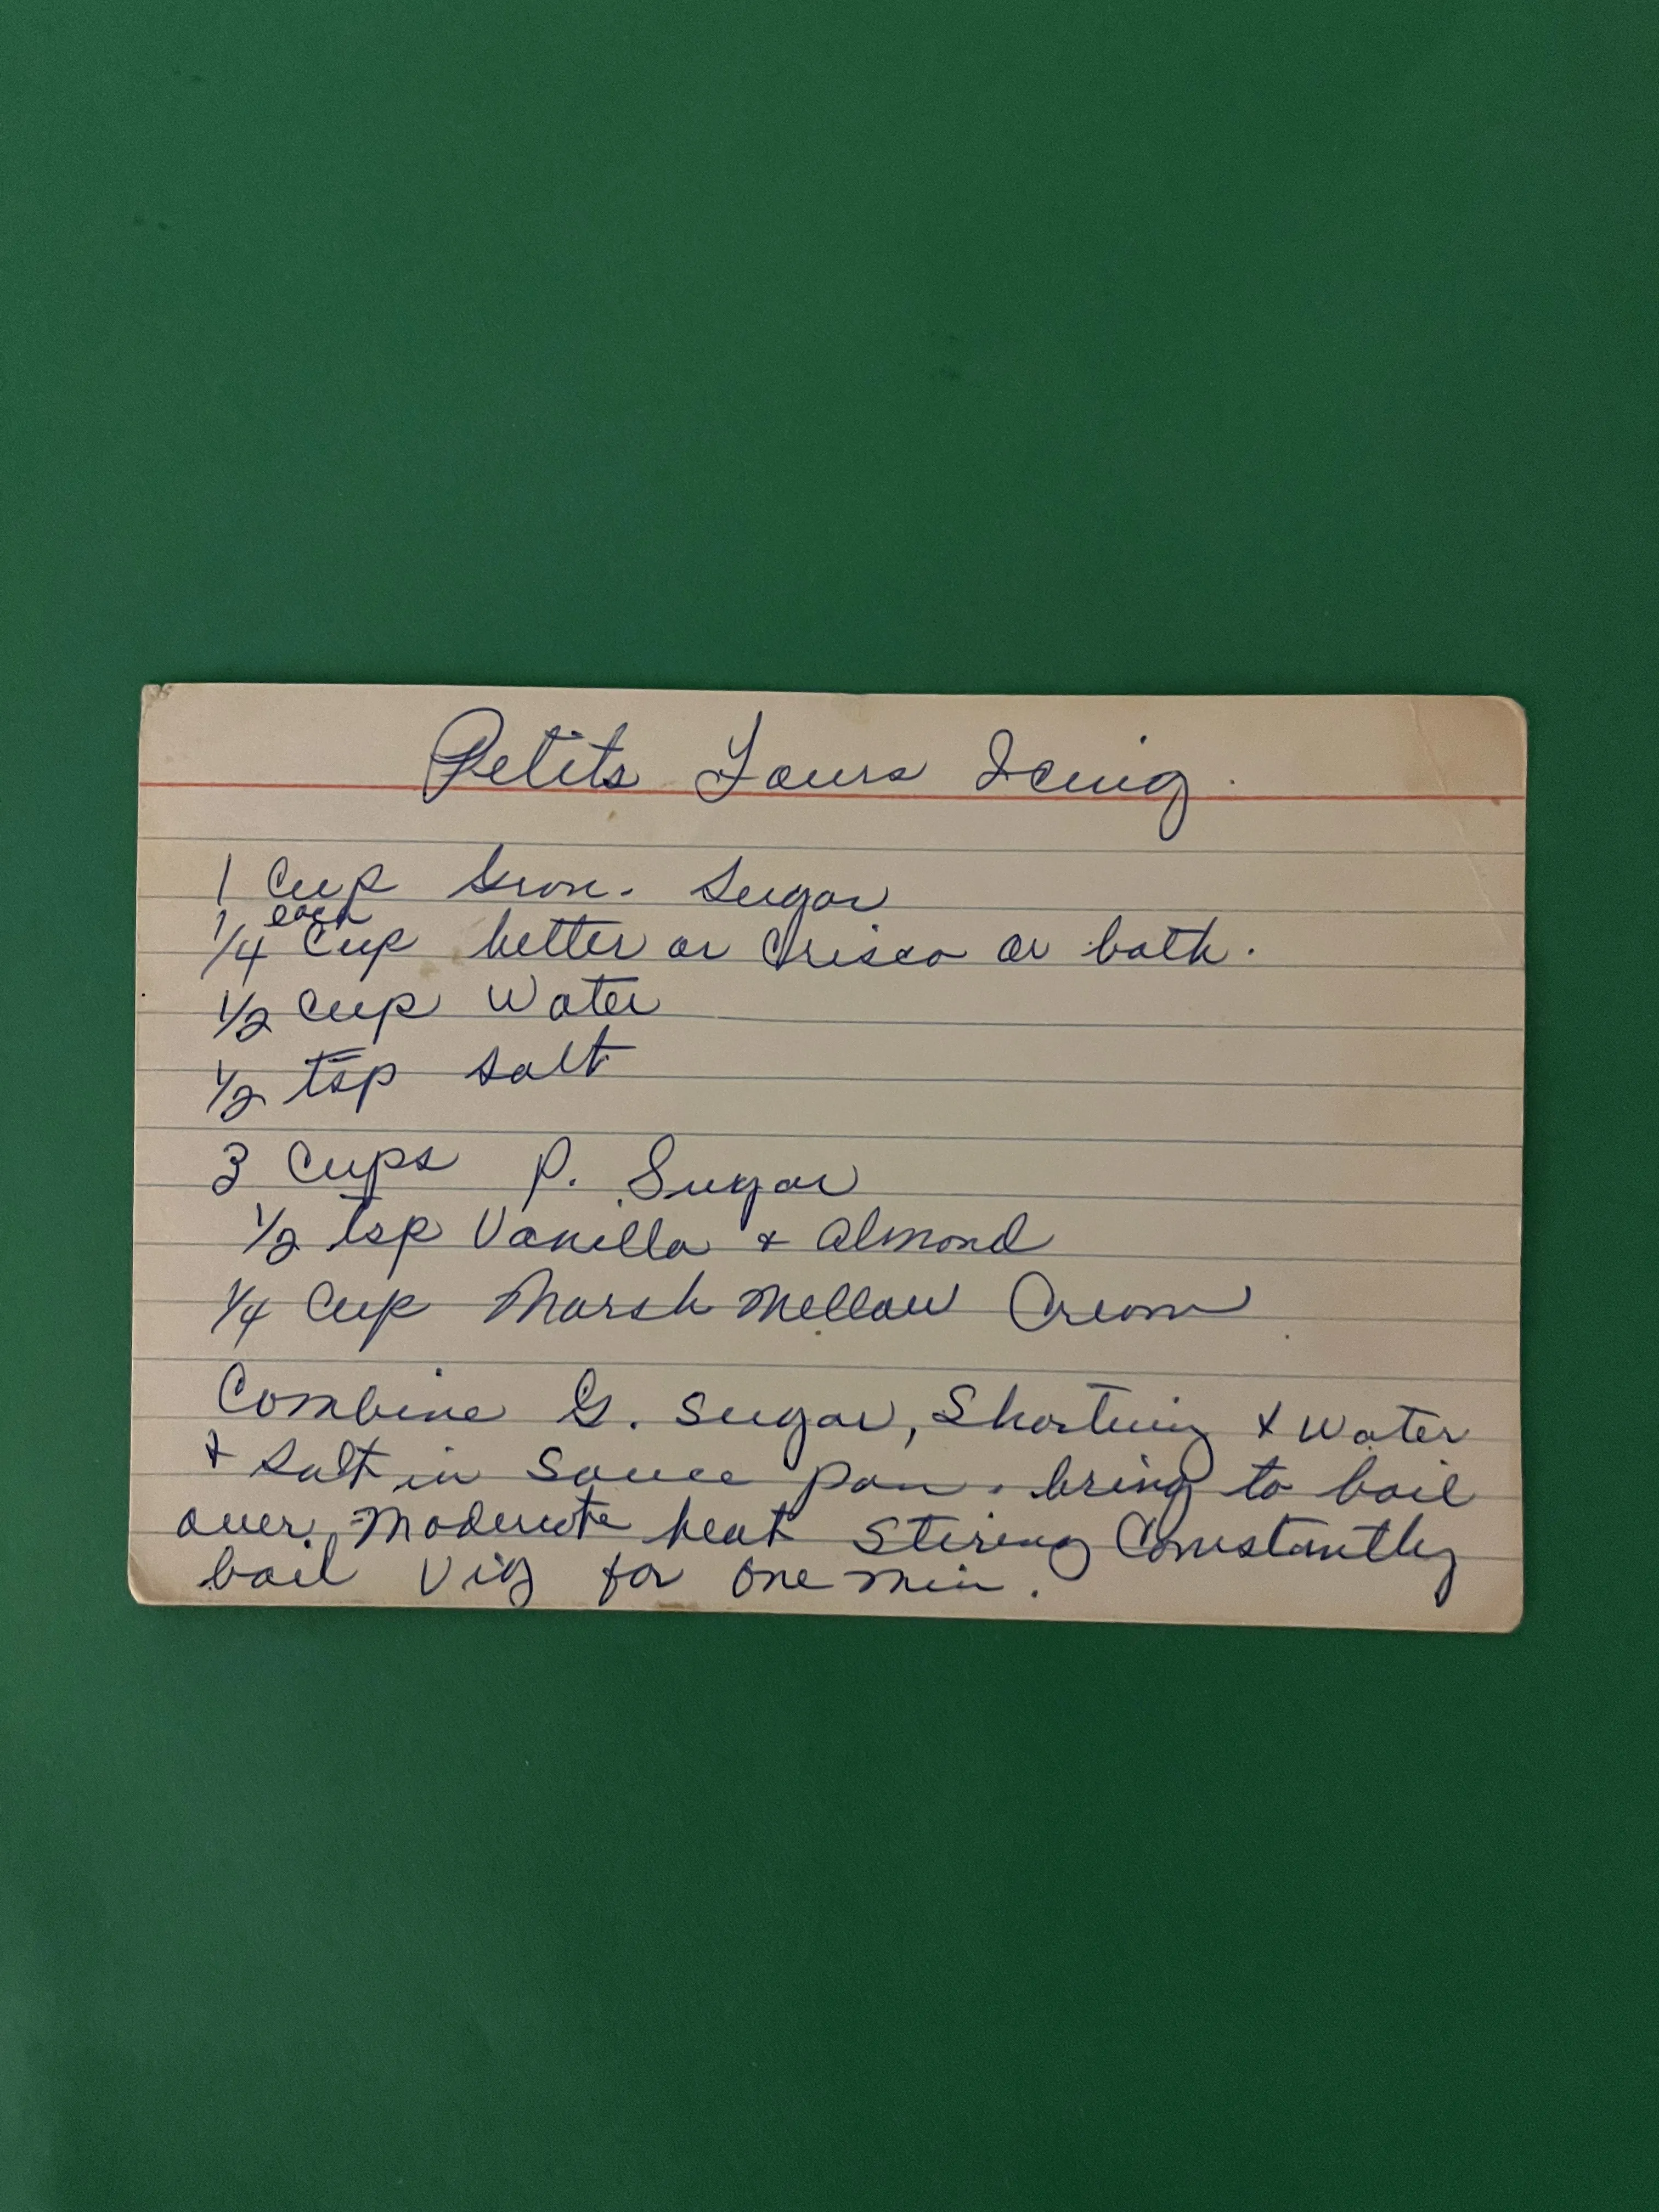 Petits Fours Icing.
1 Cup Gran. Sugar
each
1/4 Cup butter or Crisco or both.
1/2 Cup Water
1/2 tsp salt
3 Cups P. Sugar
1/2 tsp Vanilla + Almond
1/4 Cup Marsh Mellow Cream
Combine G. Sugar, Shortning + Water
+ Salt in Sauce pan. bring to boil
over Moderate heat Stiring Constantly
boil Vig for one min.